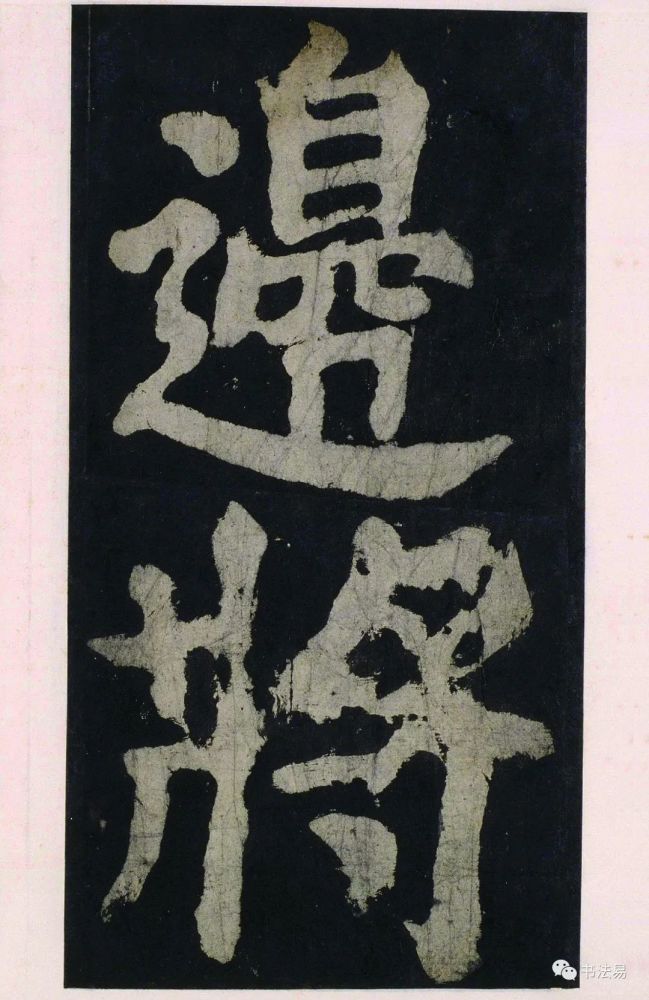 邊將
书法易